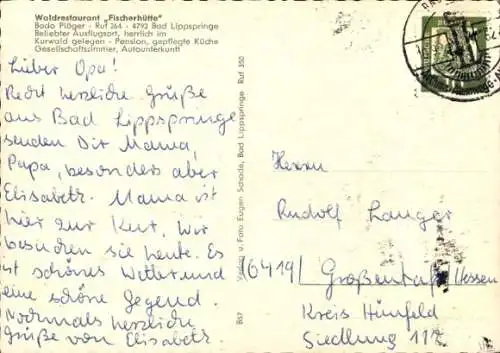 Waldrestaurant „Fischerhütte"
Bodo Plöger - Ruf 264 - 4792 Bad Lippspringe
Beliebter Ausflugsort, herrlich im
Kurwald gelegen - Pension, gepflegte Küche
Gesellschaftszimmer, Autounterkunft
Lieber Opa!
Recht herzliche Grüße
aus Bad Lippspringe
senden Dir Mama,
Papa, besonders aber
Elisabeth. Mama ist
hier zur Kur. Wir
besuchen sie heute. Es
ist schönes Wetter und
eine schöne Gegend.
Nochmals herzliche
Grüße von Elisabeth
Verlag u. Foto Eugen Schade, Bad Lippspringe Ruf 350
B67
Herrn
Rudolf Langer
(6419) Großentaft/Hessen
Kreis Hünfeld
Siedlung 112